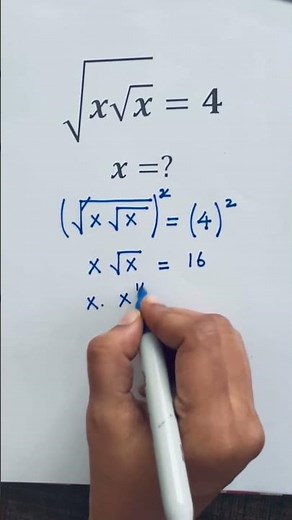 √(x√x) = 4
x =?
(√(x√x))² = (4)²
x√x = 16
x. x